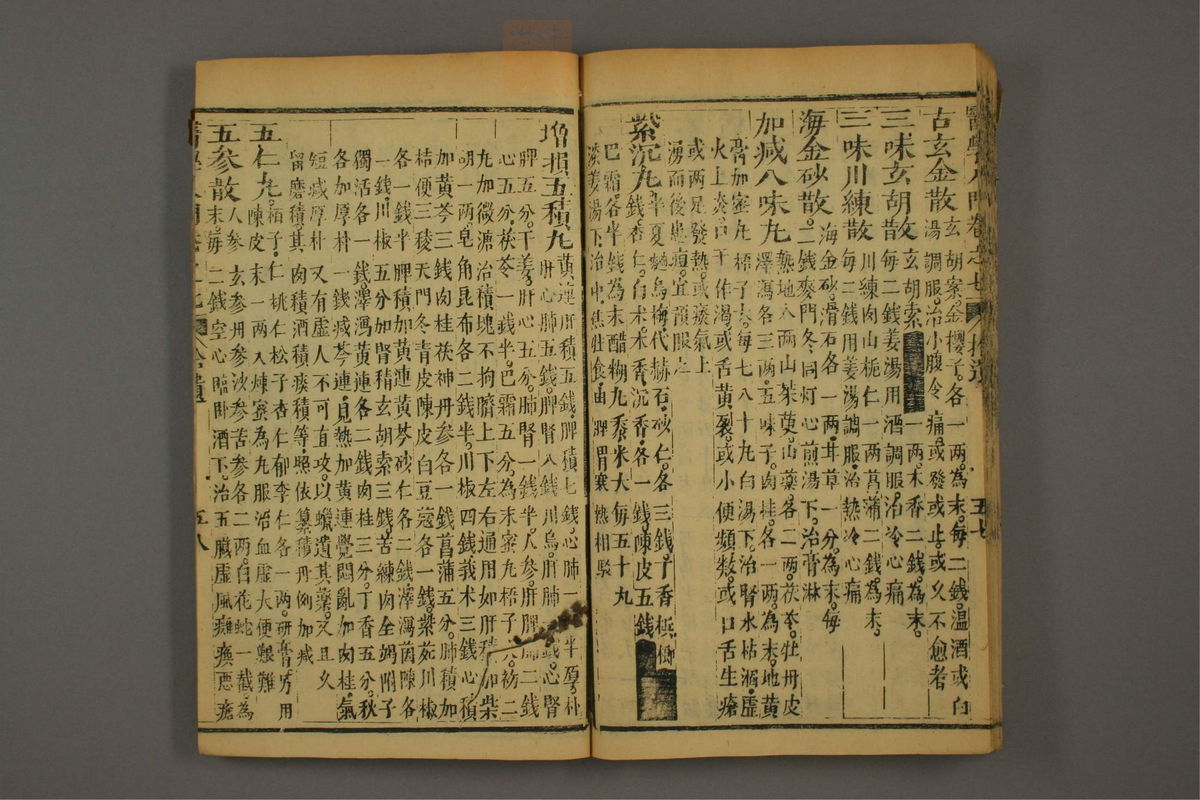 醫學入門卷之七 拾遺 五七
古玄金散 玄胡索金櫻子各一兩為末每二錢温酒或白
湯調服治小腹令痛或發或止或久不愈者
三味玄胡散 玄胡索一兩木香二錢為末
每二錢姜湯用酒調服治冷心痛
三味川練散 川練肉山梔仁一兩菖蒲二錢為末
每二錢用姜湯調服治熱冷心痛
海金砂散 海金砂滑石各一兩甘草一分為末每
二錢麥門冬同灯心煎湯下治膏淋
加減八味丸 熟地八兩山茱萸山藥各二兩茯苓牡丹皮
澤瀉各三兩五味子肉桂各一兩為末地黄
膏加蜜丸梧子大每七八十丸白湯下治腎水枯涸虛
火上炎口干作渴或舌黄裂或小便頻數或口舌生瘡
或兩足發熱或痰氣上
湧而後患疽宜預服之
紫沉丸 半夏麯烏梅代赫石砂仁各三錢丁香檳榔
錢杏仁白朮木香沉香各一錢陳皮五錢
巴霜各半錢為末醋糊丸黍米大每五十丸
淡姜湯下治中焦吐食由脾胃寒熱相駁
增損五積丸 黄連肝積五錢脾積七錢心肺一兩半厚朴
肝心肺五錢脾腎八錢川烏肝肺一錢心腎
脾五分干姜肝心五分肺腎一錢半人參肝脾肺二錢
心五分茯苓一錢半巴霜五分為末蜜丸梧子大初二
丸加微溏治積塊不拘臍上下左右通用如肝積加柴
胡一兩皂角昆布各二錢半川椒四錢莪朮三錢心積
加黄芩三錢肉桂茯神丹參各一錢菖蒲五分肺積加
桔便三稜天門冬青皮陳皮白豆蔻各一錢紫菀川椒
各一錢半脾積加黄連黄芩砂仁各二錢澤瀉茵陳各
一錢川椒五分如腎積玄胡索三錢苦練肉全蝎附子
獨活各一錢澤瀉黄連各二錢肉桂三分丁香五分秋
各加厚朴一錢減芩連見熱加黄連覺悶亂加肉桂氣
短減厚朴又有虛人不可直攻以蠟遺其藥又且久
留磨積其肉積酒積痰積等照依纂積丹例加減
五仁丸 柏子仁桃仁松子杏仁郁李仁各一兩研膏另用
陳皮末一兩入煉蜜為丸服治血虛大便艱難
五參散 人參玄參丹參沙參苦參各二兩白花蛇一截為
末每二錢空心臨卧酒下治五臟虛風癱瘓悪瘡
醫學入門卷之七 拾遺 五八